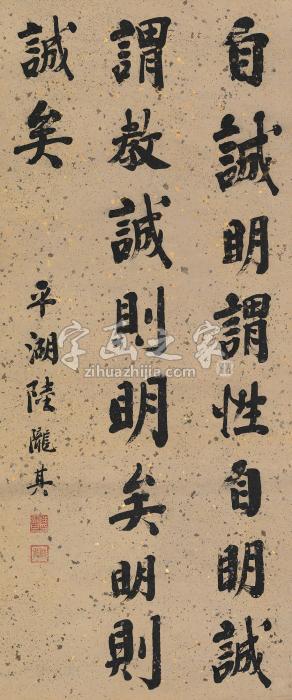 自誠明謂性自明誠
謂教誠則明矣明則
誠矣
平湖陸隴其
字画之家
zihuazhijia.com